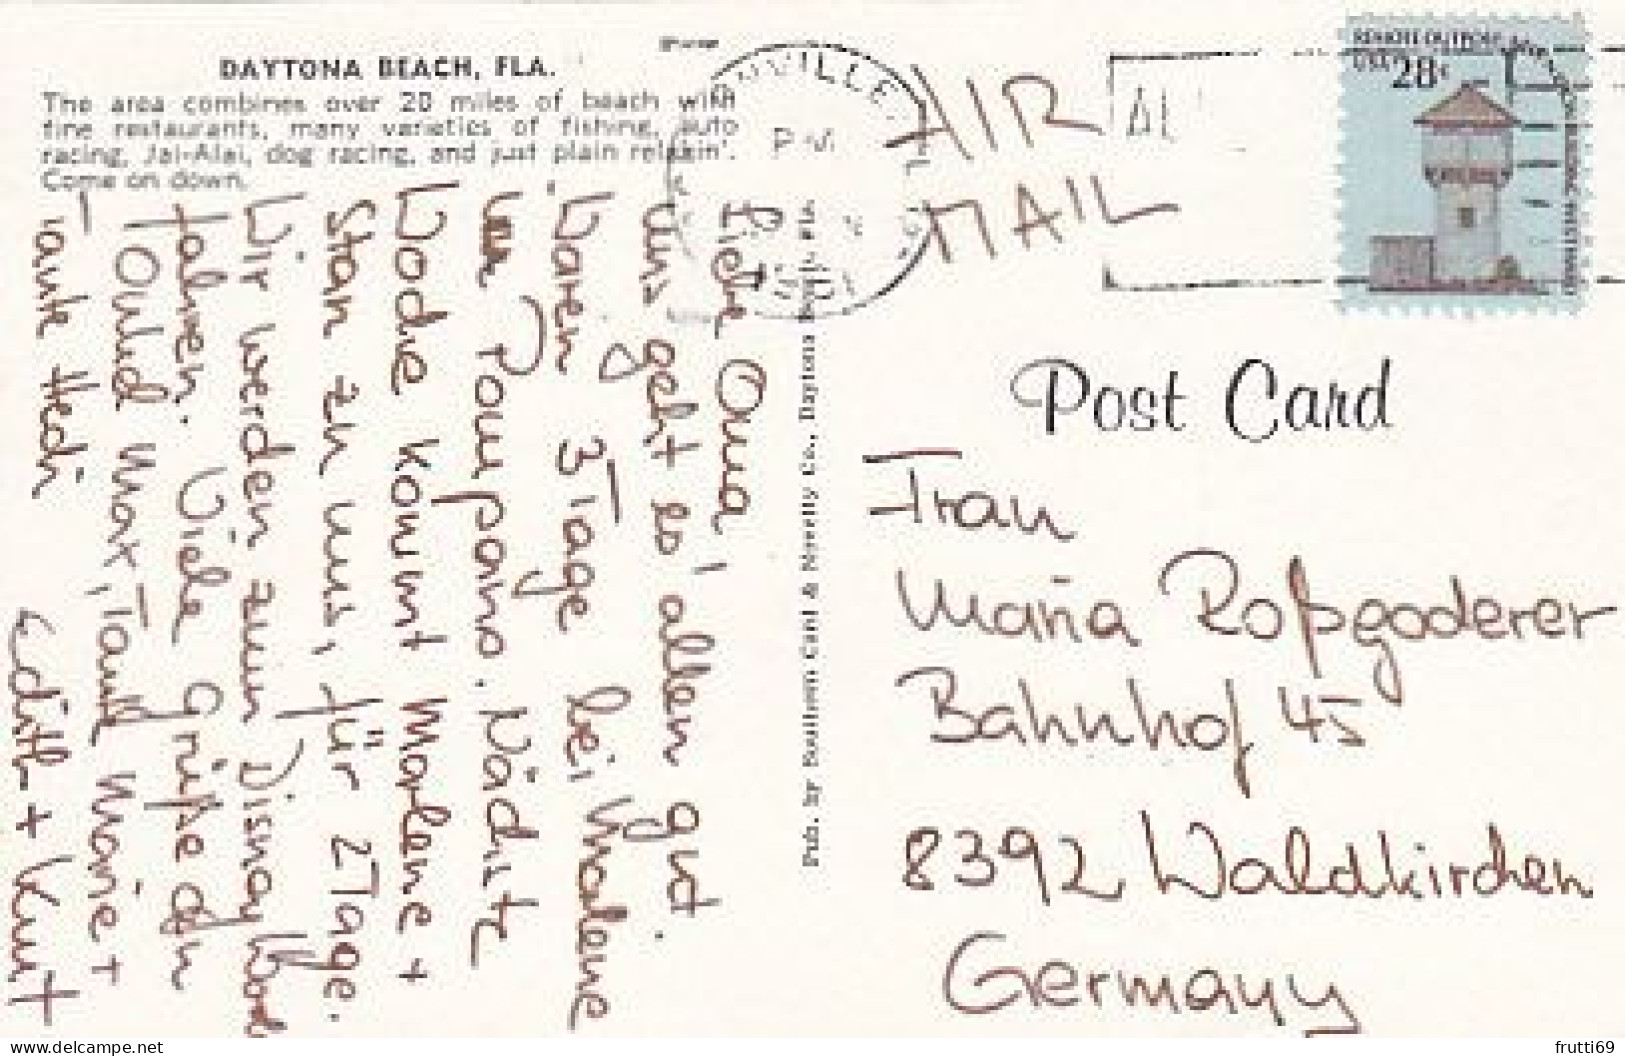 DAYTONA BEACH, FLA.
The area combines over 20 miles of beach with
fine restaurants, many varieties of fishing, auto
racing, Jai-Alai, dog racing, and just plain relaxin'.
Come on down.
Liebe Oma,
uns geht es allen gut.
Waren 3 Tage bei Marlene
in Pompano. Nächste
Woche kommt Marlene +
Stan zu uns, für 2 Tage.
Wir werden zum Disney World
fahren. Viele Grüße an
Onkel Max, Tante Marie +
Tante Hedi
Edith + Kurt
Pub. by Southern Card & Novelty Co., Daytona Beach, Fla.
PM
AIR
MAIL
USA 28c
Post Card
Frau
Maria Roßgoderer
Bahnhof 45
8392 Waldkirchen
Germany
delcampe.net
frutti69